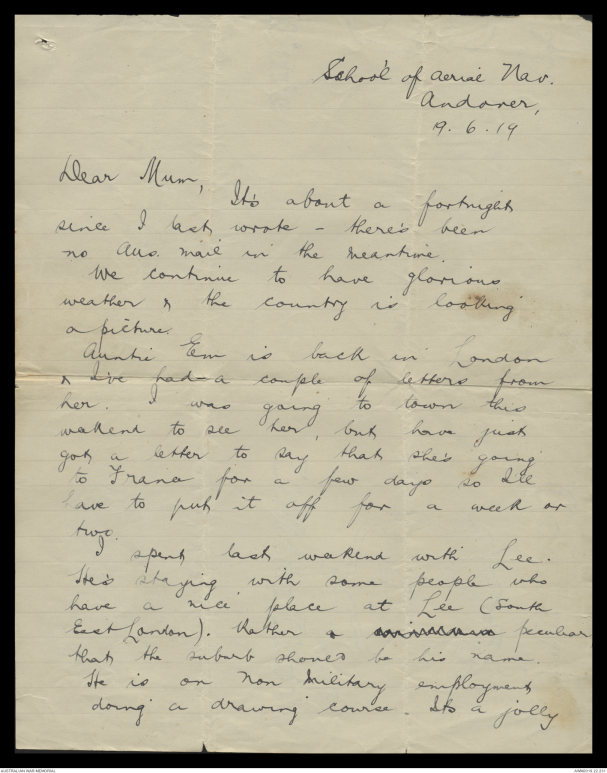 School of Aerial Nav.
Andover,
19.6.19
Dear Mum,
It's about a fortnight
since I last wrote - there's been
no Aus. mail in the meantime.
We continue to have glorious
weather & the country is looking
a picture.
Auntie Em is back in London
& I've had a couple of letters from
her. I was going to town this
weekend to see her, but have just
got a letter to say that she's going
to France for a few days so I'll
have to put it off for a week or
two.
I spent last weekend with Lee.
He's staying with some people who
have a nice place at Lee (South
East London). Rather peculiar
that the suburb should be his name.
He is on Non Military employment
doing a drawing course. Its a jolly
AUSTRALIAN WAR MEMORIAL